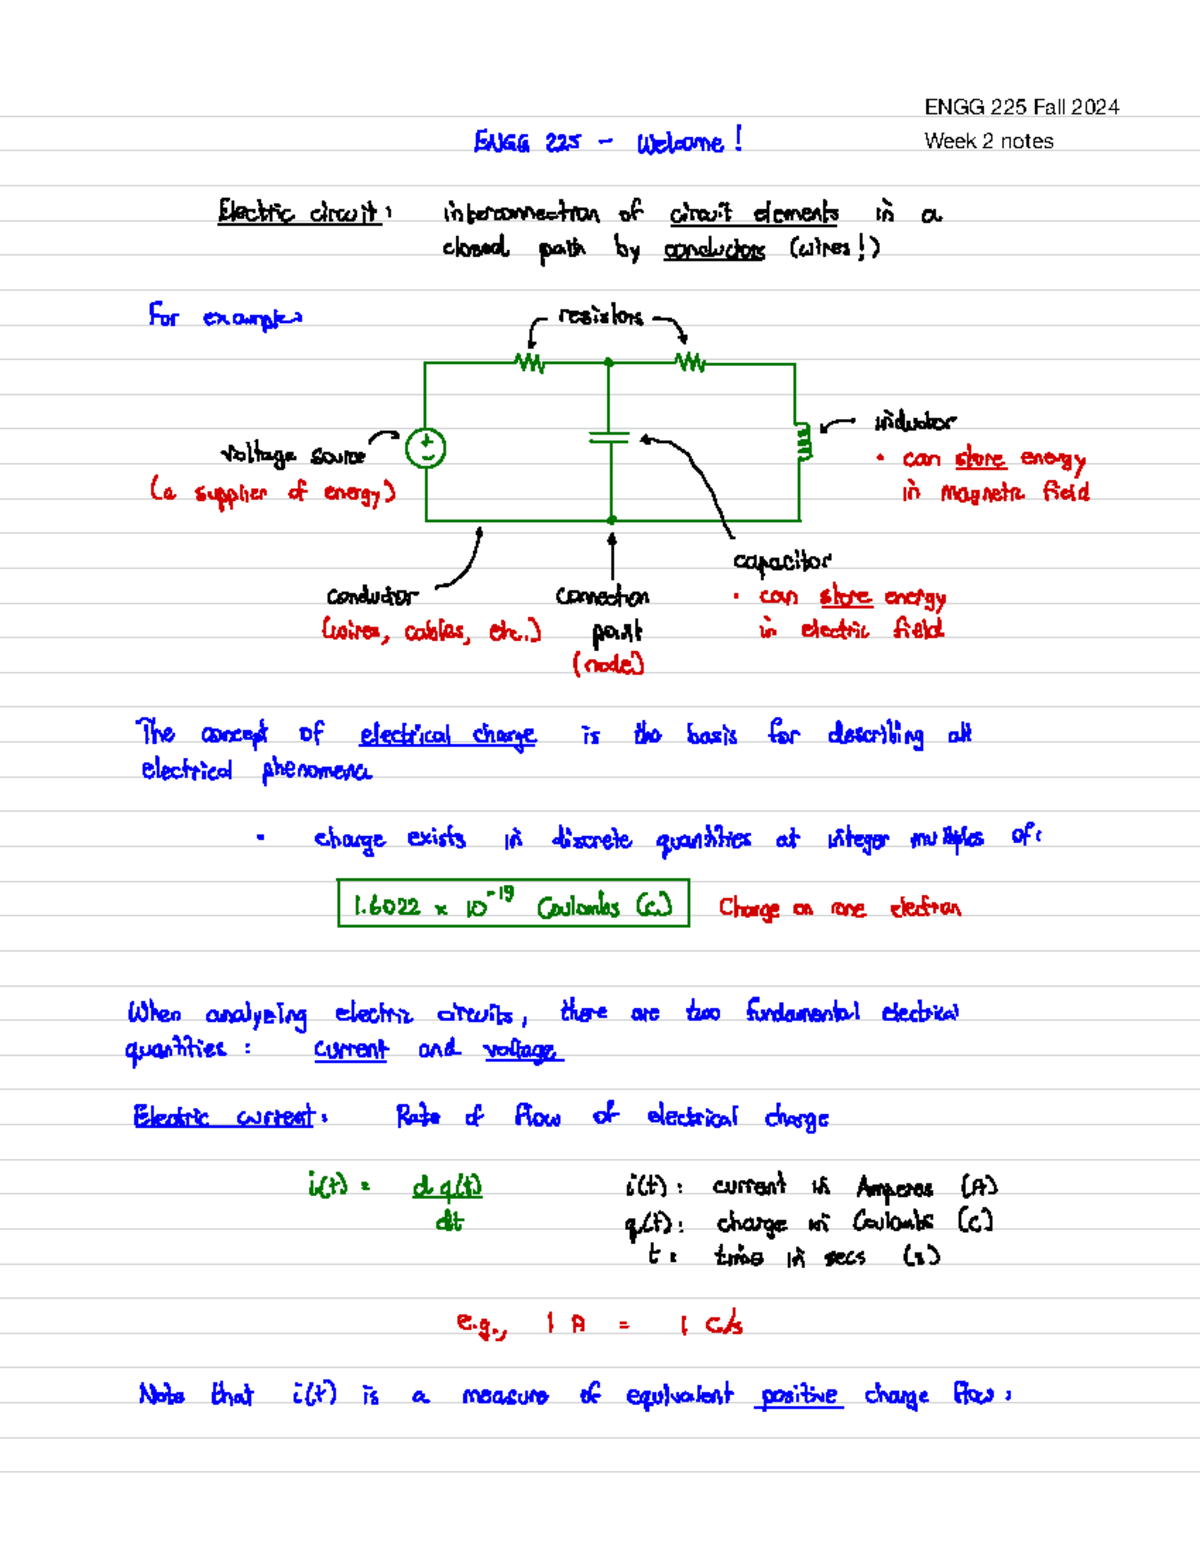 ENGG 225 Fall 2024
Week 2 notes
ENGG 225 - Welcome!
Electric circuit: interconnection of circuit elements in a
closed path by conductors (wires!)
For example:
resistors
inductor
• can store energy
in magnetic field
voltage source
(a supplier of energy)
capacitor
• can store energy
in electric field
conductor
(wires, cables, etc.)
connection
point
(node)
The concept of electrical charge is the basis for describing all
electrical phenomena
• charge exists in discrete quantities at integer multiples of:
1.6022 x 10^-19 Coulombs (C) Charge on one electron
When analyzing electric circuits, there are two fundamental electrical
quantities: current and voltage
Electric current: Rate of flow of electrical charge
i(t) = dq(t)/dt
i(t): current in Amperes (A)
q(t): charge in Coulombs (C)
t: time in secs (s)
e.g., 1 A = 1 C/s
Note that i(t) is a measure of equivalent positive charge flow: